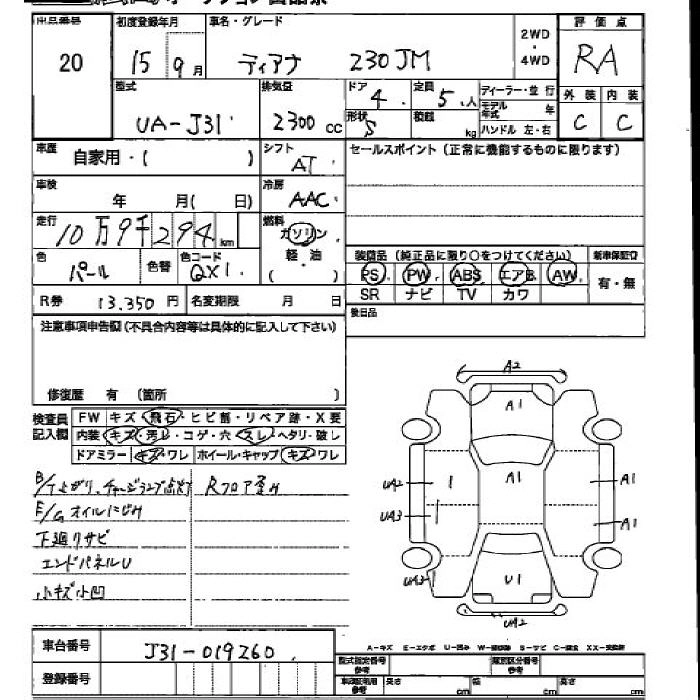 出品番号 初度登録年月 車名・グレード 2WD・4WD 評価点
20 15 9月 ティアナ 230JM RA
型式 排気量 ドア 定員 ディーラー・並行 外装 内装
UA-J31 2300cc 4 5人 モデル年式 年 C C
形状 S 積載 kg ハンドル 左・右
車歴 自家用・( ) シフト AT セールスポイント(正常に機能するものに限ります)
車検 年 月( 日) 冷房 AAC
走行 10万9千294km 燃料 ガソリン
軽・油
( )
色 パール 色替 色コード QX1 装備品(純正品に限り○をつけてください) 新車保証書
PS PW ABS エアB AW 有・無
SR ナビ TV カワ
R券 13.350円 名変期限 月 日
後日品
注意事項申告欄(不具合内容等は具体的に記入して下さい)
修復歴 有 (箇所 )
検査員記入欄 FW キズ・飛石・ヒビ割・リペア跡・X要
内装・キズ・汚れ・コゲ・穴・スレ・ヘタリ・破し
ドアミラー キズ・ワレ ホイール・キャップ キズ・ワレ
B/T上がり、チャージランプ点灯 Rフロア歪み
E/Gオイルにじみ
下廻りサビ
エンドパネルU
小キズ小凹
A2
A1
A1
A1
A1
UA2
1
UA3
1
UA3
U1
UA2
車台番号 J31-019260
A-キズ E-エクボ U-凹み
登録番号
型式指定番号 参考 類別区分番号 参考
長さ cm 幅 cm 高さ cm